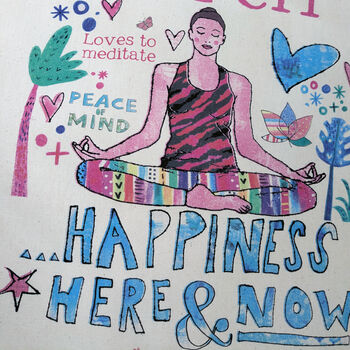 Loves to
meditate
PEACE
OF
MIND
...HAPPINESS
HERE & NOW